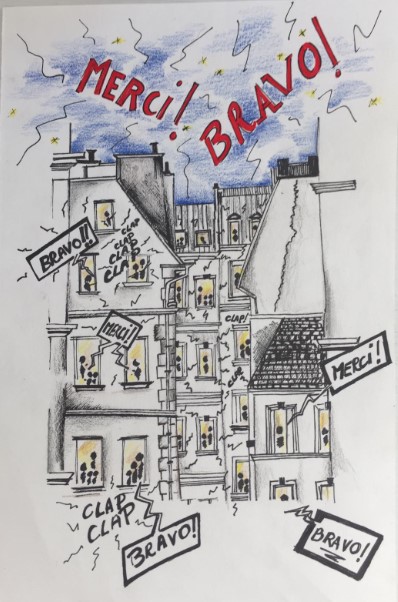 MERCI!
BRAVO!
BRAVO!!
CLAP
CLAP
CLAP
CLAP
MERCI!
CLAP!
CLAP
MERCI!
CLAP
CLAP
BRAVO!
BRAVO!